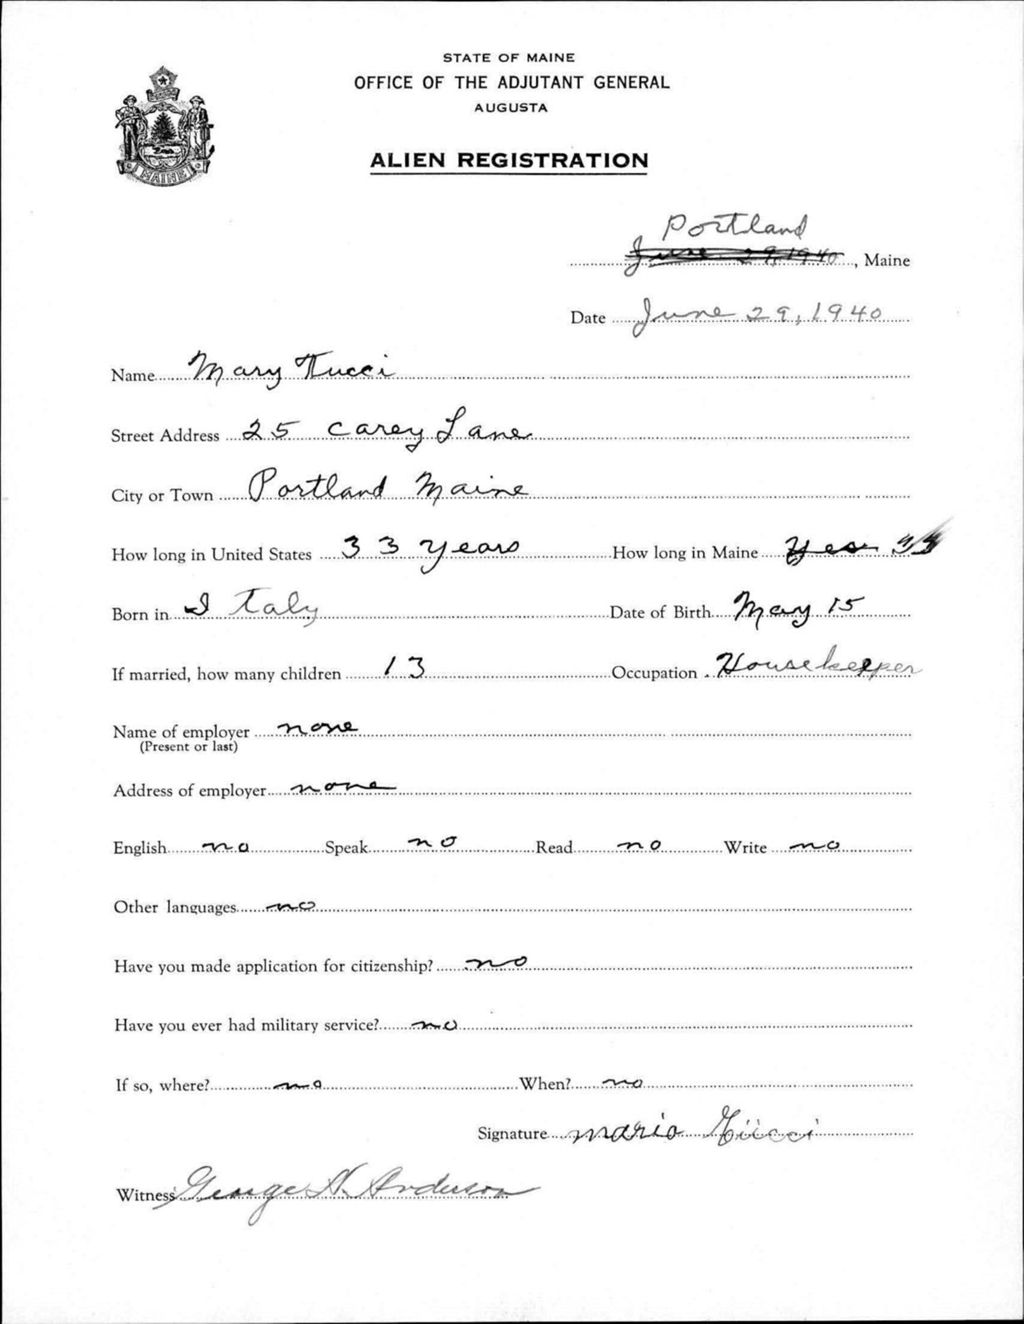 STATE OF MAINE
OFFICE OF THE ADJUTANT GENERAL
AUGUSTA
MAINE
ALIEN REGISTRATION
Portland
June 29, 1940, Maine
Date June 29, 1940
Name Mary Tucci
Street Address 25 Carey Lane
City or Town Portland Maine
How long in United States 33 Years How long in Maine Yes 33
Born in Italy Date of Birth May 15
If married, how many children 13 Occupation Housekeeper
Name of employer none
(Present or last)
Address of employer none
English no Speak no Read no Write no
Other languages no
Have you made application for citizenship? no
Have you ever had military service? no
If so, where? no When? no
Signature maria
Witness George N. Anderson